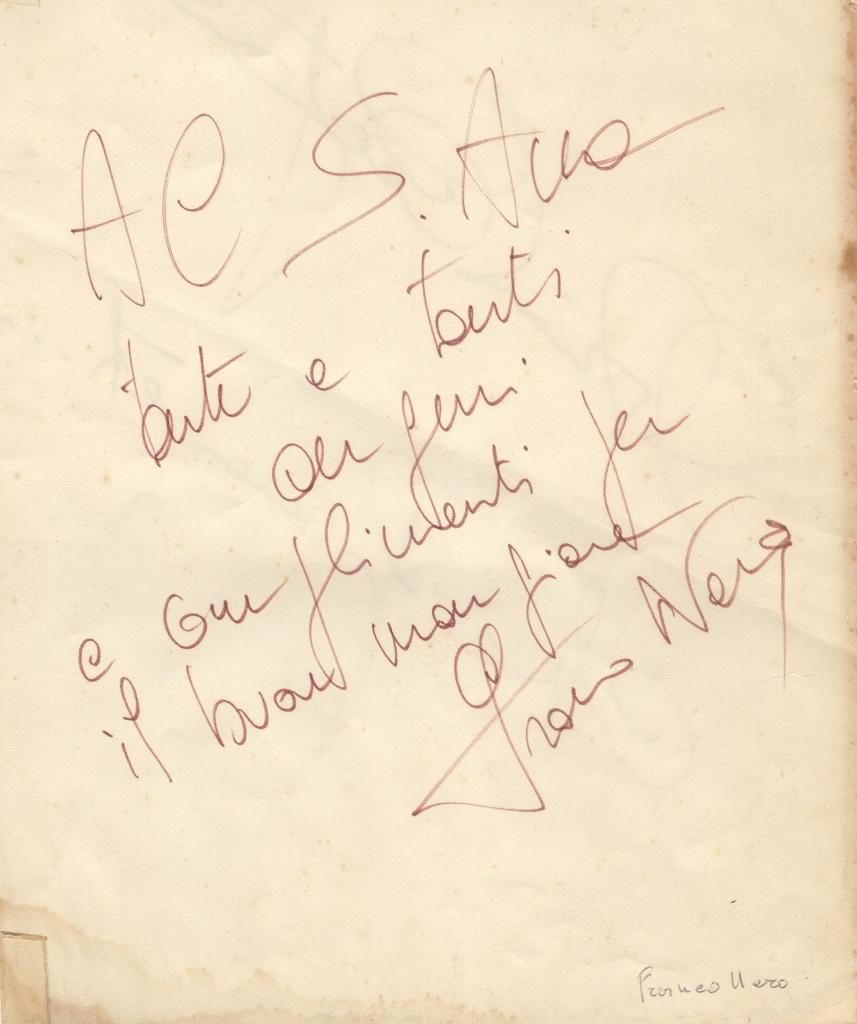 Al S. Anna
tanti e tanti
auguri
e complimenti per
il buon mangiare
Franco Nero
Franco Nero